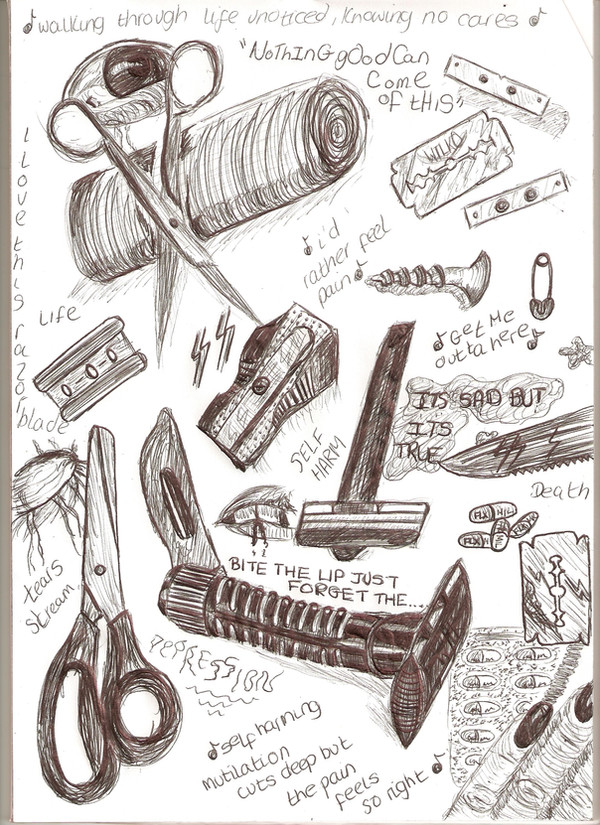 ♪walking through life unoticed, Knowing no cares ♪
"NOTHING gOOd CAN
COME
OF THIS"
WILKO
I Love this razor
blade
♪ i'd
rather feel
pain ♪
Life
♪ Get Me
outta here ♪
ITS SAD BUT
ITS
TRUE
SELF
HARM
Death
tears
stream
BITE THE LIP JUST
FORGET THE...
DEPRESSION
♪self harming
mutilation
cuts deep but
the pain
feels
so right ♪